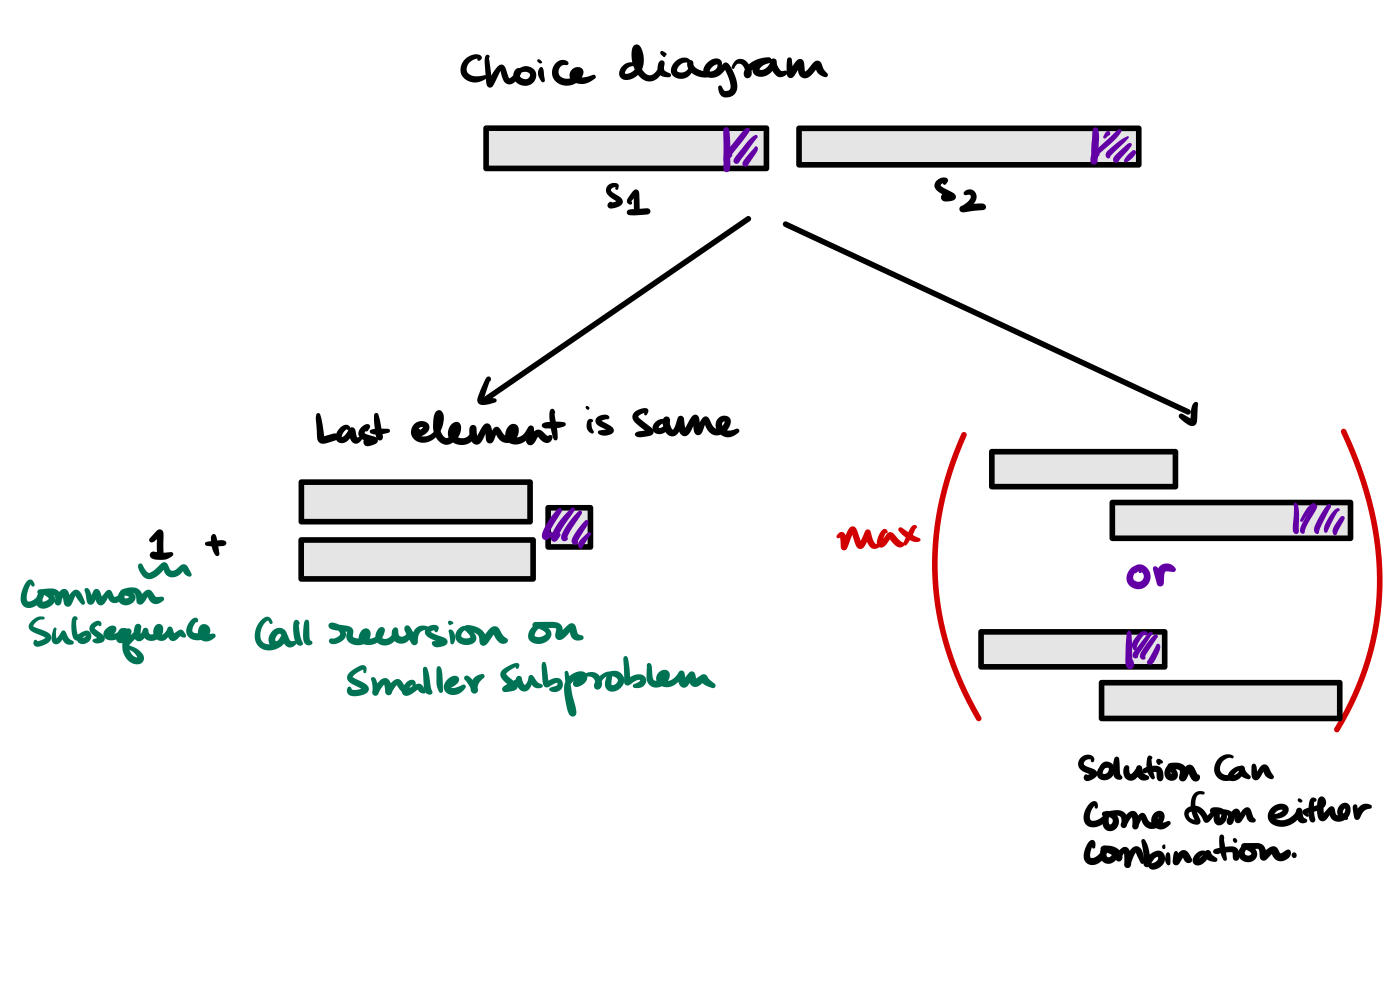 Choice diagram
S1
S2
Last element is same
max
1 +
or
Common
Subsequence
Call recursion on
Smaller Subproblem
Solution Can
Come from either
Combination.